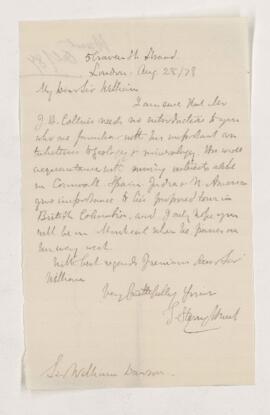 5 Craven St Strand
London, Aug. 28/78
My dear Sir William
I am sure that Mr
J. H. Collins needs no introduction to you
who are familiar with his important con
tributions to geology & mineralogy. His wide
acquaintance with mining interests alike
in Cornwall Spain India & N. America
give importance to his proposed tour in
British Columbia, and I only hope you
will be in Montreal when he passes on
his way west
With best regards I remain dear Sir
William
Very faithfully Yours
T. Sterry Hunt
Sir William Dawson.